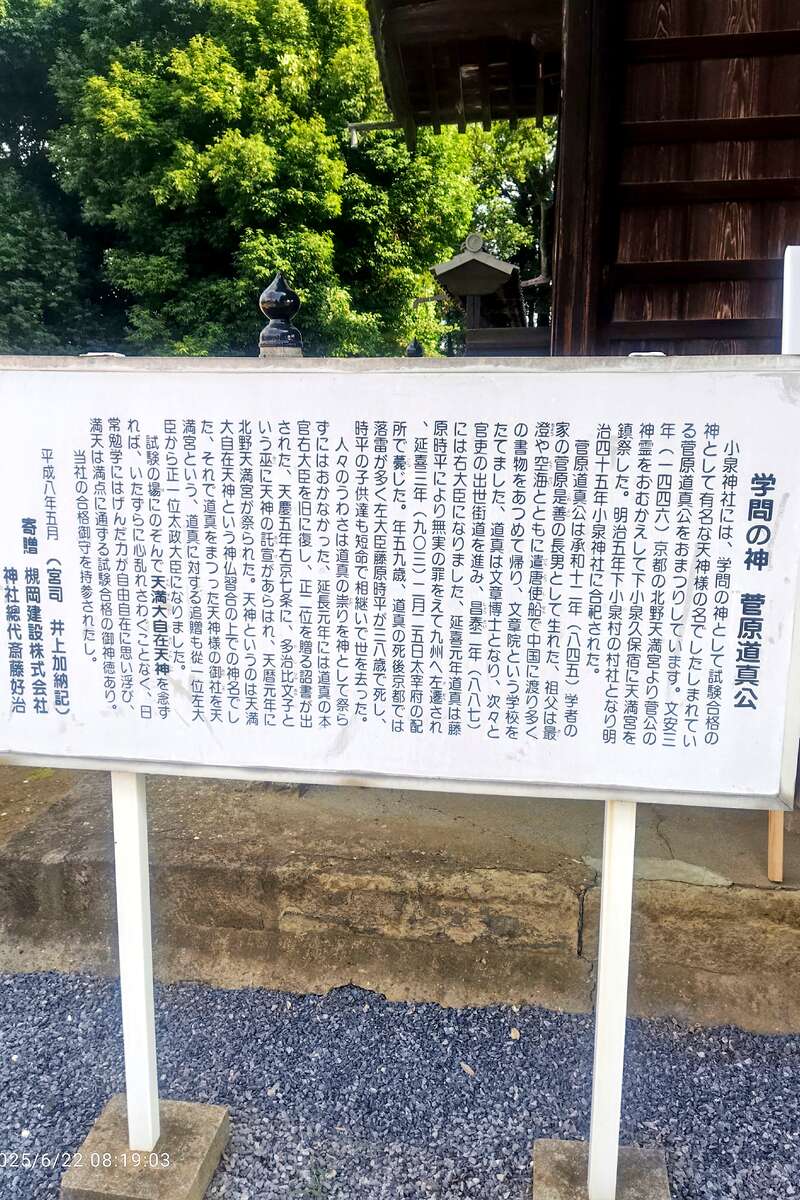 学問の神　菅原道真公
小泉神社には、学問の神として試験合格の
神として有名な天神様の名でしたしまれてい
る菅原道真公をおまつりしています。文安三
年（一四四六）京都の北野天満宮より菅公の
神霊をおむかえして下小泉久保宿に天満宮を
鎮祭した。明治五年下小泉村の村社となり明
治四十五年小泉神社に合祀された。
菅原道真公は承和十二年（八四五）学者の
家の菅原是善の長男として生れた、祖父は最
澄や空海とともに遣唐使船で中国に渡り多く
の書物をあつめて帰り、文章院という学校を
たてました、道真は文章博士となり、次々と
官吏の出世街道を進み、昌泰二年（八八七）
には右大臣になりました、延喜元年道真は藤
原時平により無実の罪をえて九州へ左遷され
、延喜三年（九〇三）二月二五日太宰府の配
所で薨じた。年五九歳、道真の死後京都では
落雷が多く左大臣藤原時平が三八歳で死し、
時平の子供達も短命で相継いで世を去った。
人々のうわさは道真の祟りを神として祭ら
ずにはおかなかった、延長元年には道真の本
官右大臣を旧に復し、正二位を贈る詔書が出
された、天慶五年右京七条に、多治比文子と
いう巫に天神の託宣があらはれ、天暦元年に
北野天満宮が祭られた。天神というのは天満
大自在天神という神仏習合の上での神名でし
た、それで道真をまつった天神様の御社を天
満宮という、道真に対する追贈も従一位左大
臣から正一位太政大臣になりました。
試験の場にのぞんで天満大自在天神を念ず
れば、いたずらに心乱れさわぐことなく、日
常勉学にはげんだ力が自由自在に思い浮び、
満天は満点に通する試験合格の御神徳あり。
当社の合格御守を持参されたし。
平成八年五月　（宮司　井上加納記）
寄贈　槻岡建設株式会社
神社總代斎藤好治
2025/6/22 08:19:03